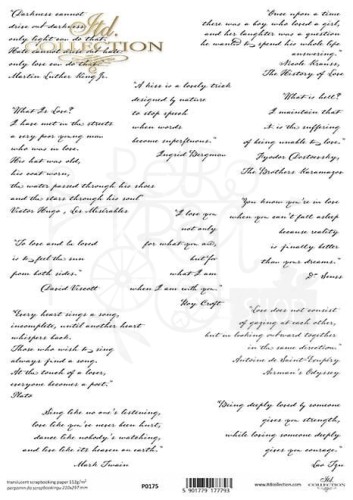 "Darkness cannot
drive out darkness;
only light can do that.
Hate cannot drive out hate
only love can do that."
Martin Luther King Jr.
Itd.
COLLECTION
"Once upon a time
there was a boy who loved a girl,
and her laughter was a question
he wanted to spend his whole life
answering."
Nicole Krauss,
The History of Love
"A kiss is a lovely trick
designed by nature
to stop speech
when words
become superfluous."
Ingrid Bergman
"What Is Love?
I have met in the streets
a very poor young man
who was in love.
His hat was old,
his coat worn,
the water passed through his shoes
and the stars through his soul"
Victor Hugo, Les Misérables
"What is hell?
I maintain that
it is the suffering
of being unable to love."
Fyodor Dostoevsky,
The Brothers Karamazov
"I love you
not only
for what you are,
but for
what I am
when I am with you."
Roy Croft
"You know you're in love
when you can't fall asleep
because reality
is finally better
than your dreams."
Dr. Seuss
"To love and be loved
is to feel the sun
from both sides."
David Viscott
"Every heart sings a song,
incomplete, until another heart
whispers back.
Those who wish to sing
always find a song.
At the touch of a lover,
everyone becomes a poet."
Plato
"Love does not consist
of gazing at each other,
but in looking outward together
in the same direction."
Antoine de Saint-Exupéry
Airman's Odyssey
"Sing like no one's listening,
love like you've never been hurt,
dance like nobody's watching,
and live like its heaven on earth."
Mark Twain
"Being deeply loved by someone
gives you strength,
while loving someone deeply
gives you courage."
Lao Tzu
translucent scrapbooking paper 112g/m²
P0175
5 901779 177793
www.itdcollection.com
Itd.
COLLECTION